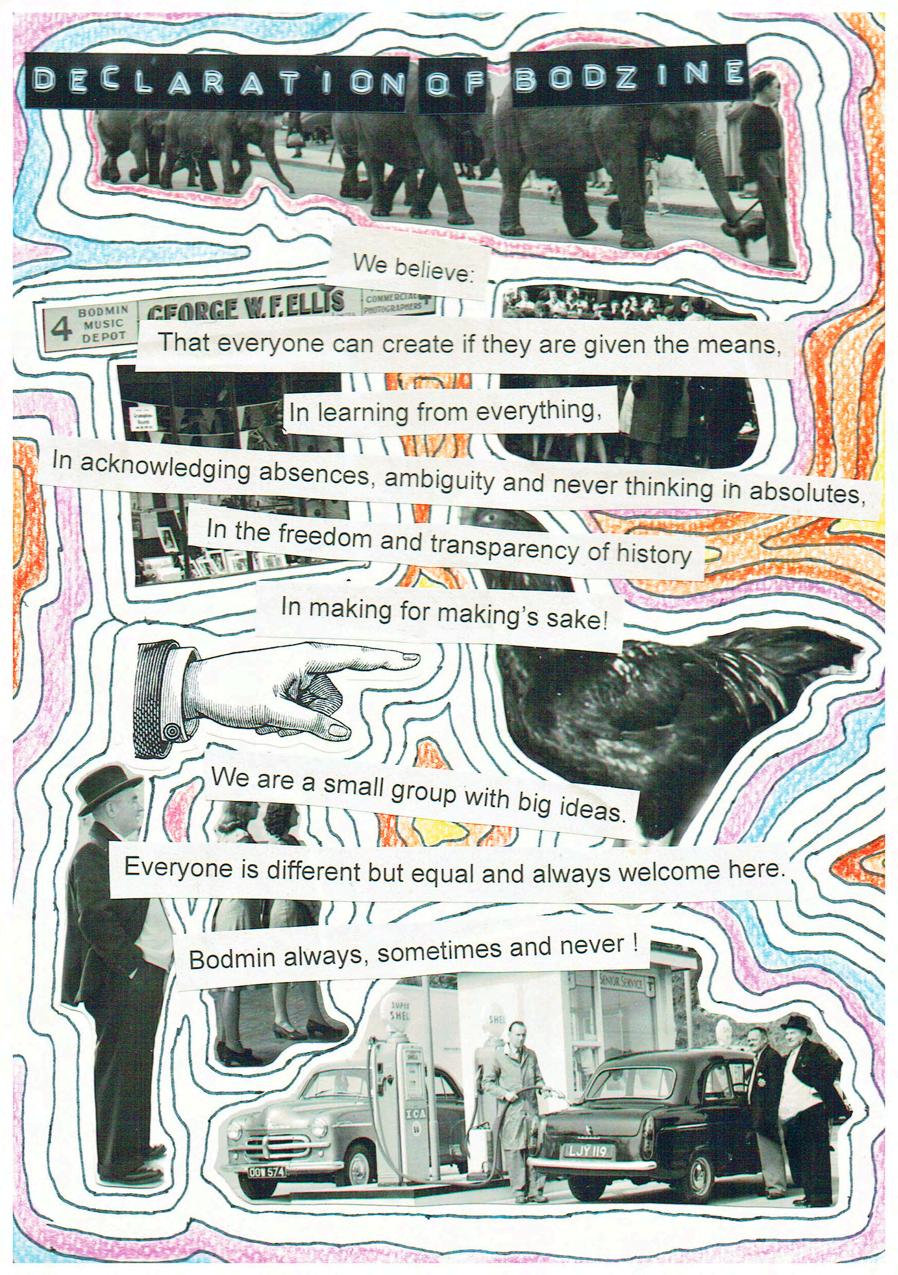 DECLARATION OF BODZINE
We believe:
4 BODMIN MUSIC DEPOT
GEORGE W.F. ELLIS
COMMERCIAL PHOTOGRAPHERS 4
That everyone can create if they are given the means,
In learning from everything,
In acknowledging absences, ambiguity and never thinking in absolutes,
In the freedom and transparency of history
In making for making's sake!
We are a small group with big ideas.
Everyone is different but equal and always welcome here.
Bodmin always, sometimes and never !
SENIOR SERVICE
SUPER
SHEL
SHEL
ICA
OOW 574
LJY 119